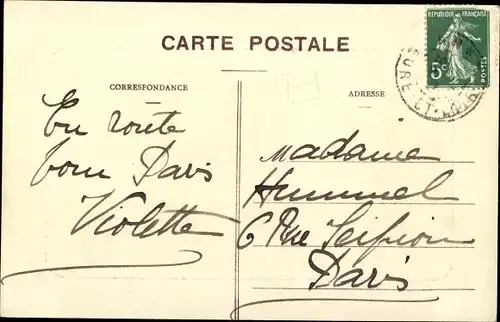 CARTE POSTALE
CORRESPONDANCE
ADRESSE
RÉPUBLIQUE FRANÇAISE
5c
POSTES
EURE-ET-LOIR
En route
pour Paris
Violette
Madame
Hummel
6 Rue Scipion
Paris